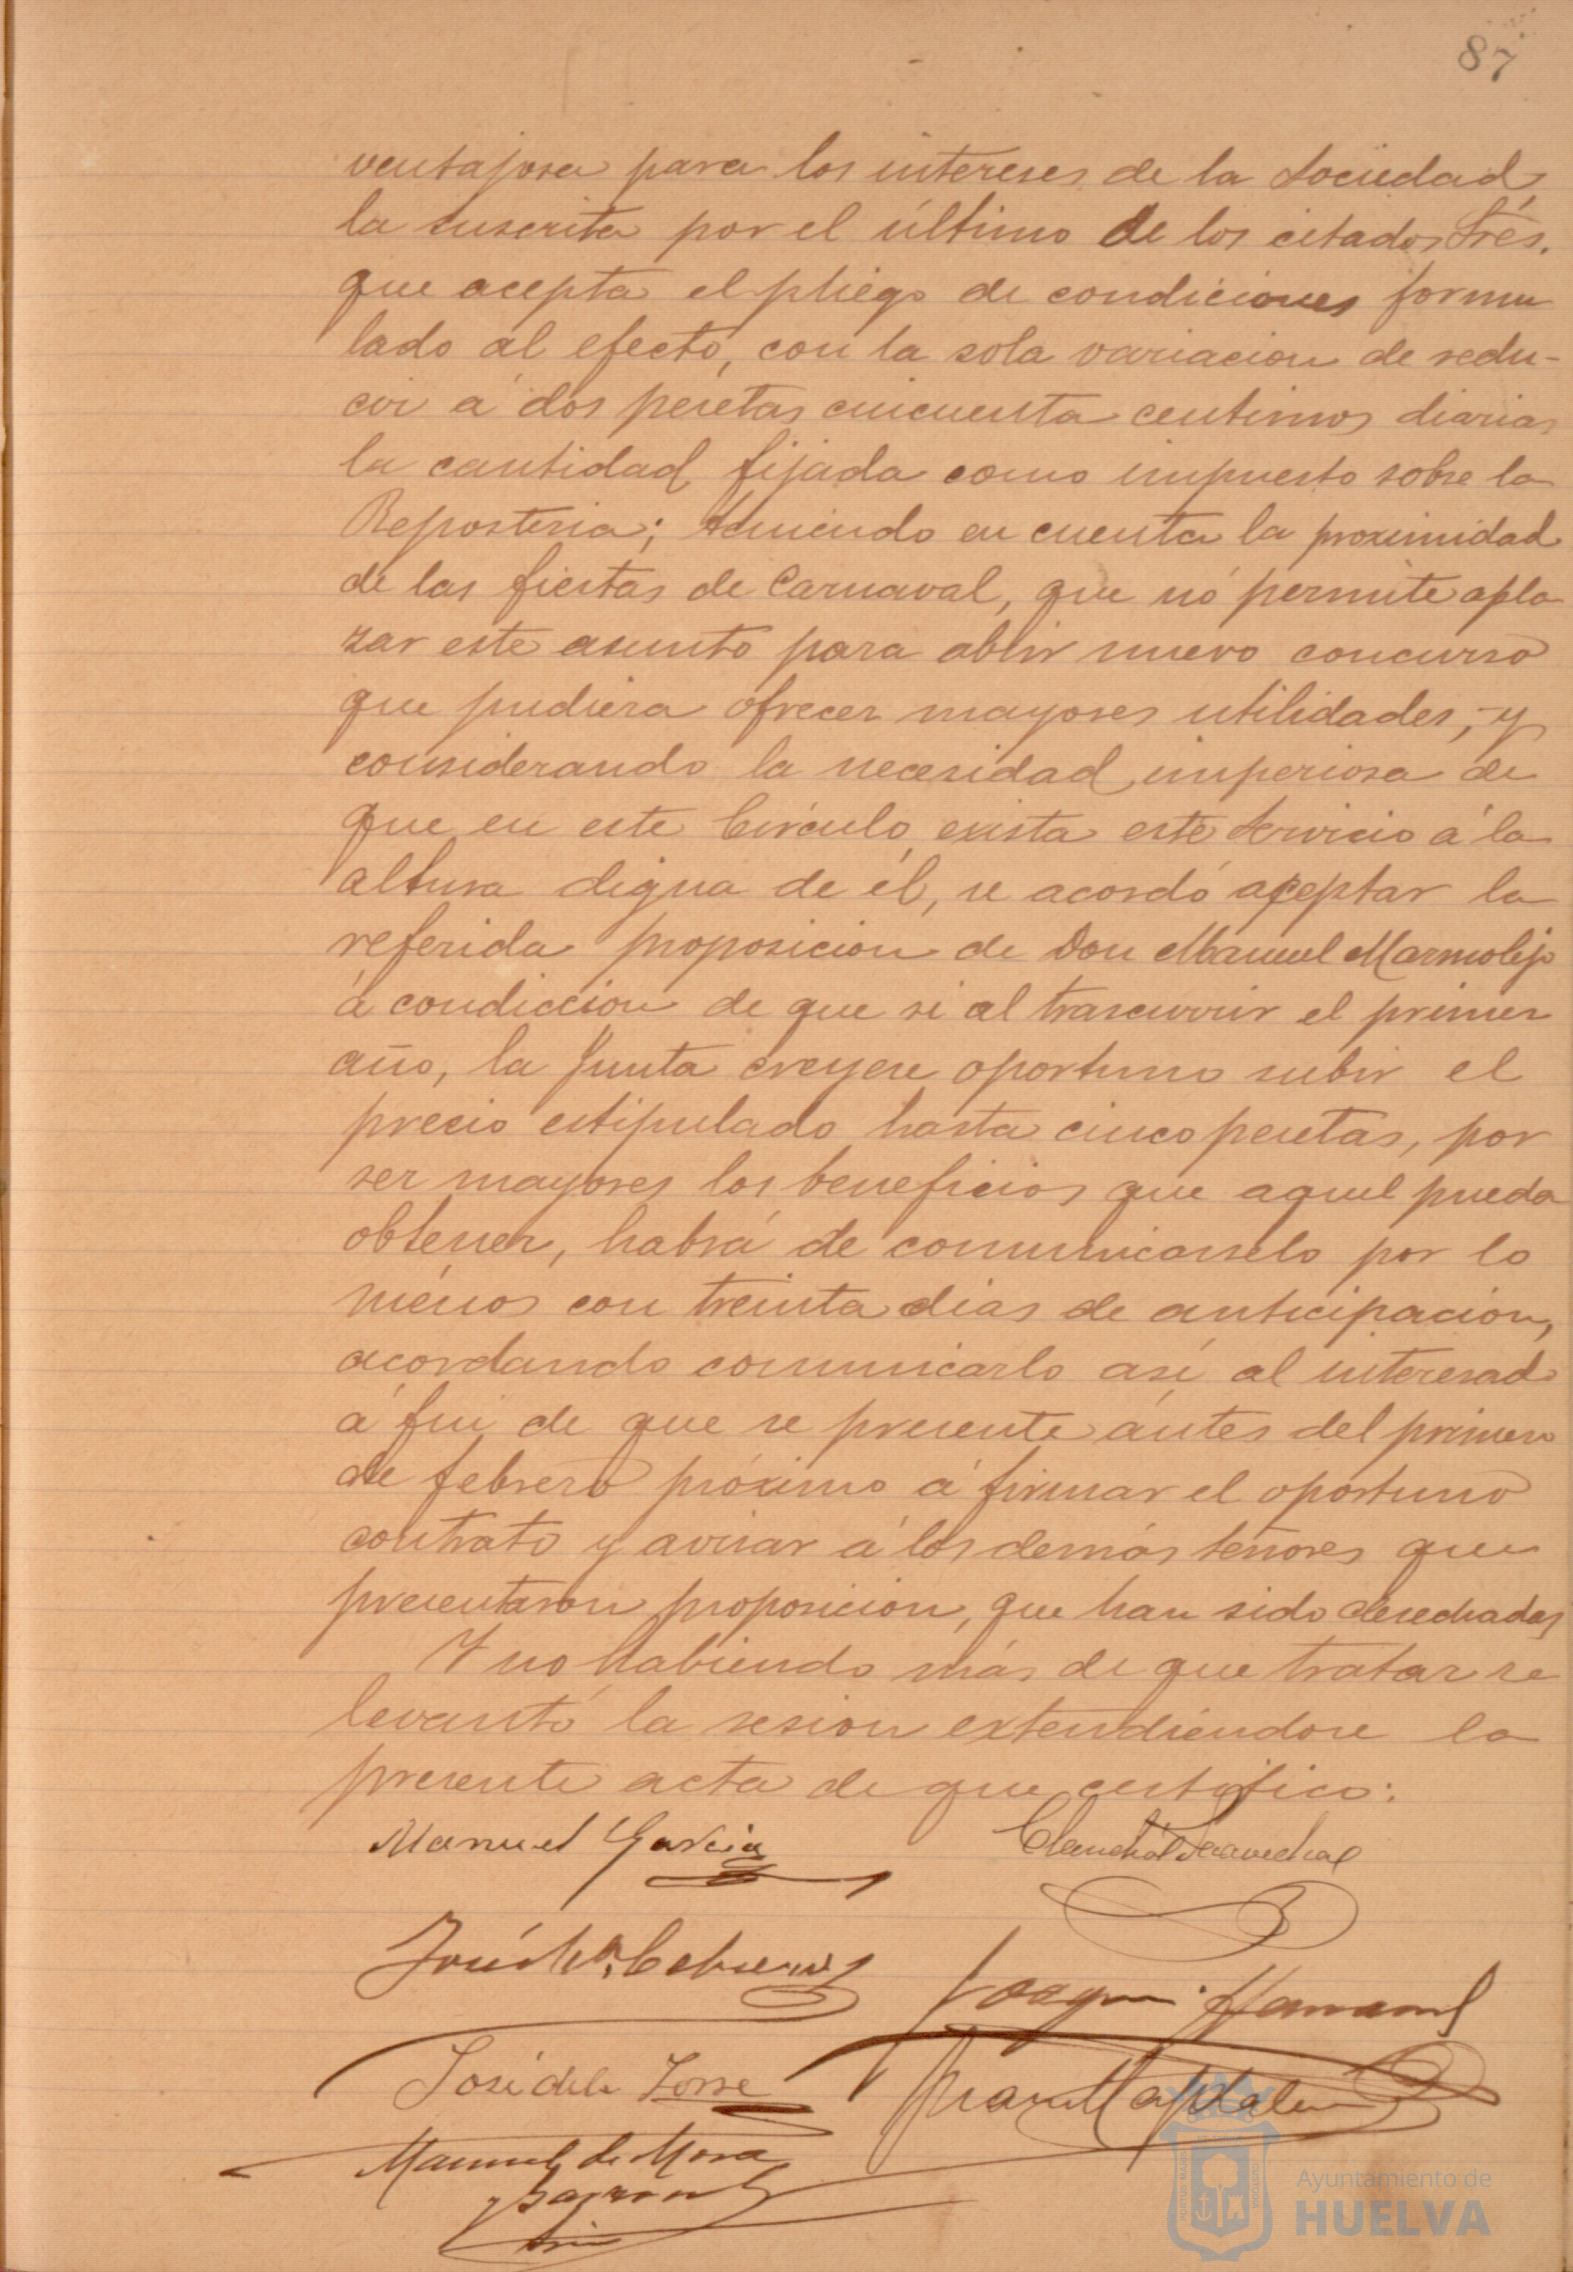 87
ventajosa para los intereses de la Sociedad,
la suscrita por el último de los citados Srés.
que acepta el pliego de condiciones formu
lado al efecto, con la sola variacion de redu-
cir á dos pesetas cincuenta centimos diarias
la cantidad fijada como impuesto sobre la
Reposteria; teniendo en cuenta la proximidad
de las fiestas de Carnaval, que nó permite apla
zar este asunto para abrir nuevo concurso
que pudiera ofrecer mayores utilidades, y
considerando la necesidad imperiosa de
que en este Círculo exista este Servicio á la
altura digna de él, se acordó aceptar la
referida proposicion de Don Manuel Marmolejo
á condiccion de que si al trascurrir el primer
año, la Junta creyese oportuno subir el
precio estipulado hasta cinco pesetas, por
ser mayores los beneficios que aquel pueda
obtener, habrá de comunicarselo por lo
ménos con treinta dias de anticipación,
acordando comunicarlo así al interesado
á fin de que se presente ántes del primero
de febrero próximo á firmar el oportuno
contrato y avisar á los demás señores que
presentaron proposicion, que han sido desechadas
Y no habiendo más de que tratar se
levantó la sesion extendiéndose la
presente acta de que certifico:
Manuel Garcia
José Mª
Joaquin
José de la Torre
Juan
Manuel de Mora
Ayuntamiento de
HUELVA